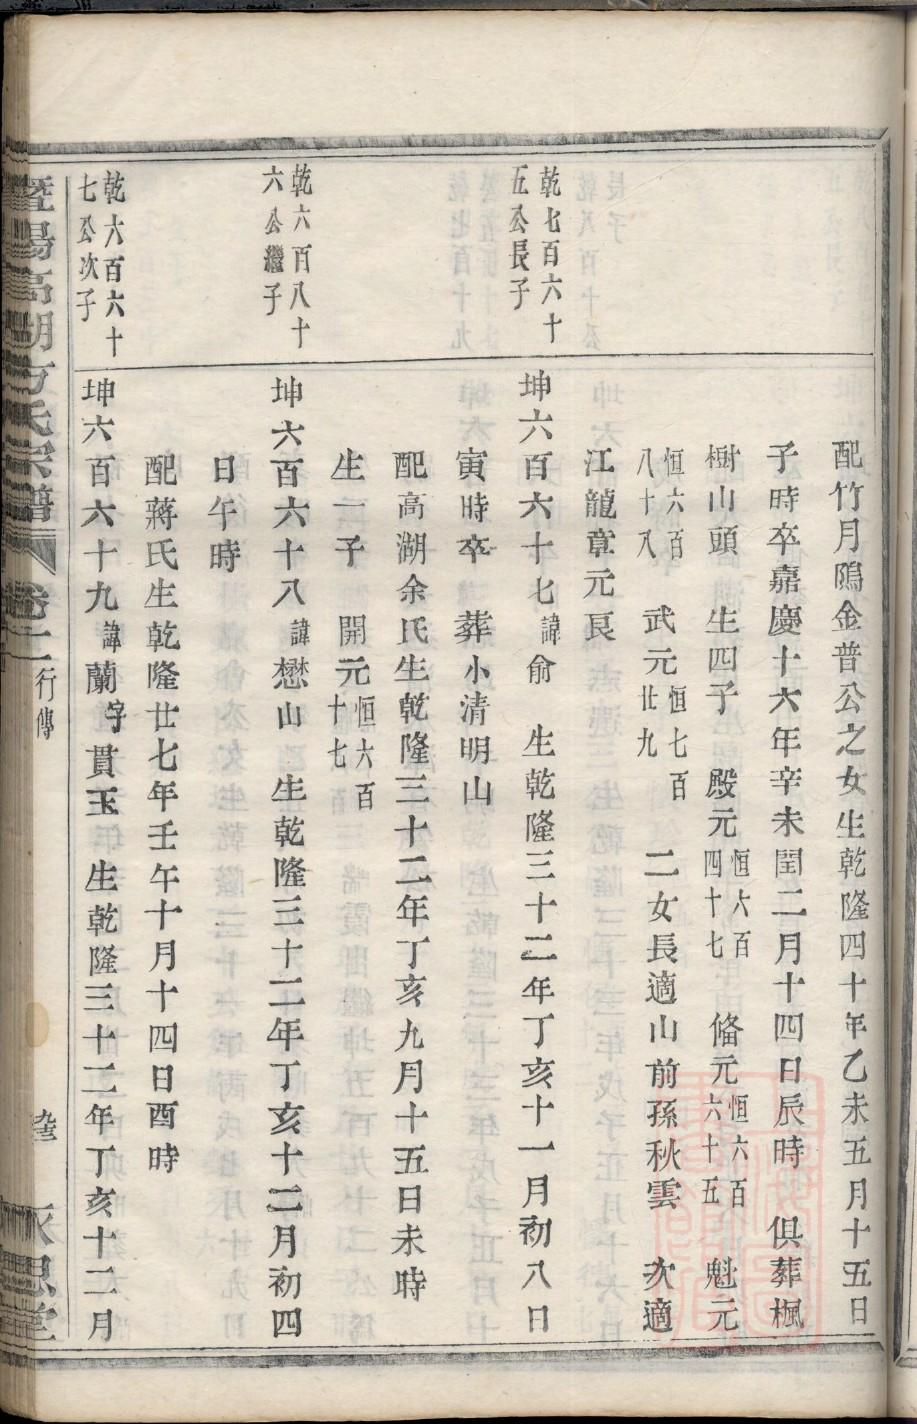 配竹月隝金普公之女生乾隆四十年乙未五月十五日
子時卒嘉慶十六年辛未閏二月十四日辰時 俱葬楓
樹山頭 生四子 殿元恒六百四十七 脩元恒六百六十五 魁元
恒六百八十八 武元恒七百廿九 二女長適山前孫秋雲 次適
江龍章元艮
乾七百六十五公長子
坤六百六十七諱俞 生乾隆三十二年丁亥十一月初八日
寅時卒 葬小清明山
配高湖余氏生乾隆三十二年丁亥九月十五日未時
生一子 開元恒六百十七
乾六百八十六公繼子
坤六百六十八諱懋山 生乾隆三十二年丁亥十二月初四
日午時
配蔣氏生乾隆廿七年壬午十月十四日酉時
乾六百六十七公次子
坤六百六十九諱蘭字貫玉 生乾隆三十二年丁亥十二月
暨陽高湖方氏宗譜 卷二 行傳 永思堂